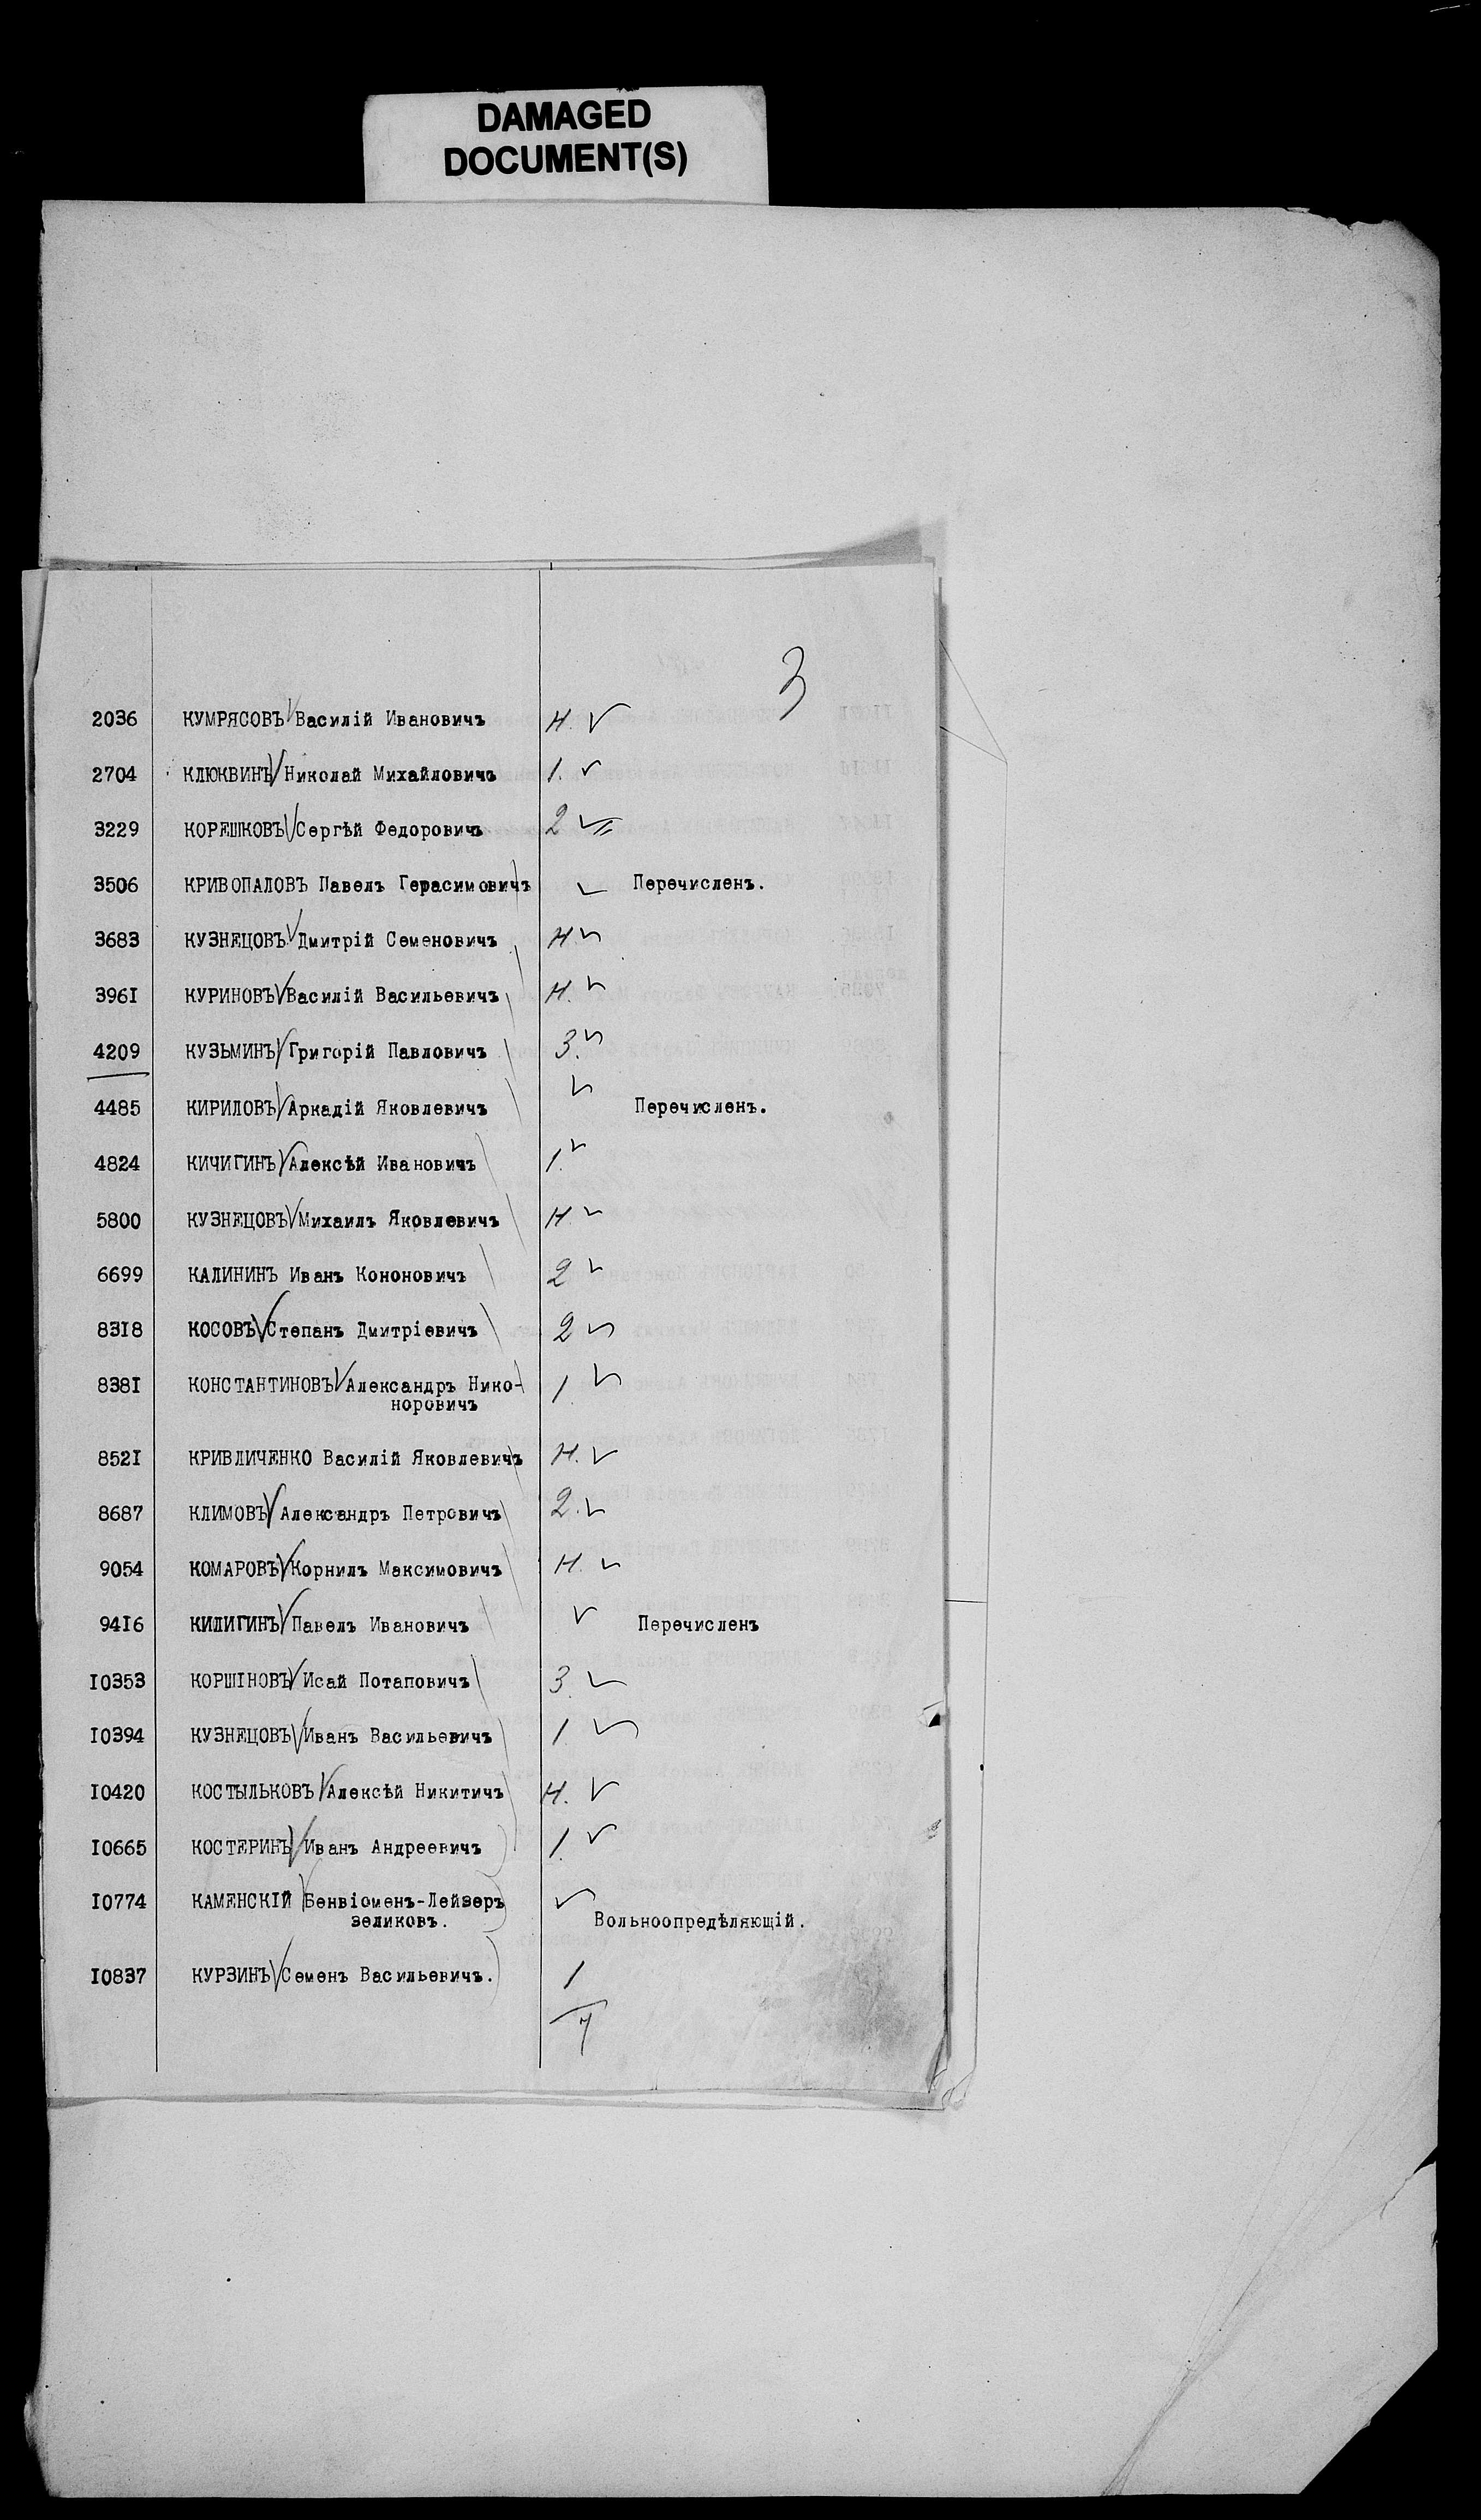 DAMAGED
DOCUMENT(S)
3
2036 КУМРЯСОВЪ Василій Ивановичъ Н. ✓
2704 КЛЮКВИНЪ Николай Михайловичъ 1. ✓
3229 КОРЕШКОВЪ Сергѣй Федоровичъ 2 ✓
3506 КРИВОПАЛОВЪ Павелъ Герасимовичъ ✓ Перечисленъ.
3683 КУЗНЕЦОВЪ Дмитрій Семеновичъ Н ✓
396I КУРИНОВЪ Василій Васильевичъ Н. ✓
4209 КУЗЬМИНЪ Григорій Павловичъ 3. ✓
4485 КИРИЛОВЪ Аркадій Яковлевичъ ✓ Перечисленъ.
4824 КИЧИГИНЪ Алексѣй Ивановичъ 1. ✓
5800 КУЗНЕЦОВЪ Михаилъ Яковлевичъ Н. ✓
6699 КАЛИНИНЪ Иванъ Кононовичъ 2 ✓
83I8 КОСОВЪ Степанъ Дмитріевичъ 2 ✓
838I КОНСТАНТИНОВЪ Александръ Нико-
норовичъ 1. ✓
852I КРИВЛИЧЕНКО Василій Яковлевичъ Н. ✓
8687 КЛИМОВЪ Александръ Петровичъ 2. ✓
9054 КОМАРОВЪ Корнилъ Максимовичъ Н. ✓
94I6 КИЛИГИНЪ Павелъ Ивановичъ ✓ Перечисленъ
I0353 КОРШІНОВЪ Исай Потаповичъ 3. ✓
I0394 КУЗНЕЦОВЪ Иванъ Васильевичъ 1 ✓
I0420 КОСТЫЛЬКОВЪ Алексѣй Никитичъ Н. ✓
I0665 КОСТЕРИНЪ Иванъ Андреевичъ 1. ✓
I0774 КАМЕНСКІЙ Бенвіоменъ-Лейзеръ ✓
зеликовъ. Вольноопредѣляющій.
I0837 КУРЗИНЪ Семенъ Васильевичъ. 1